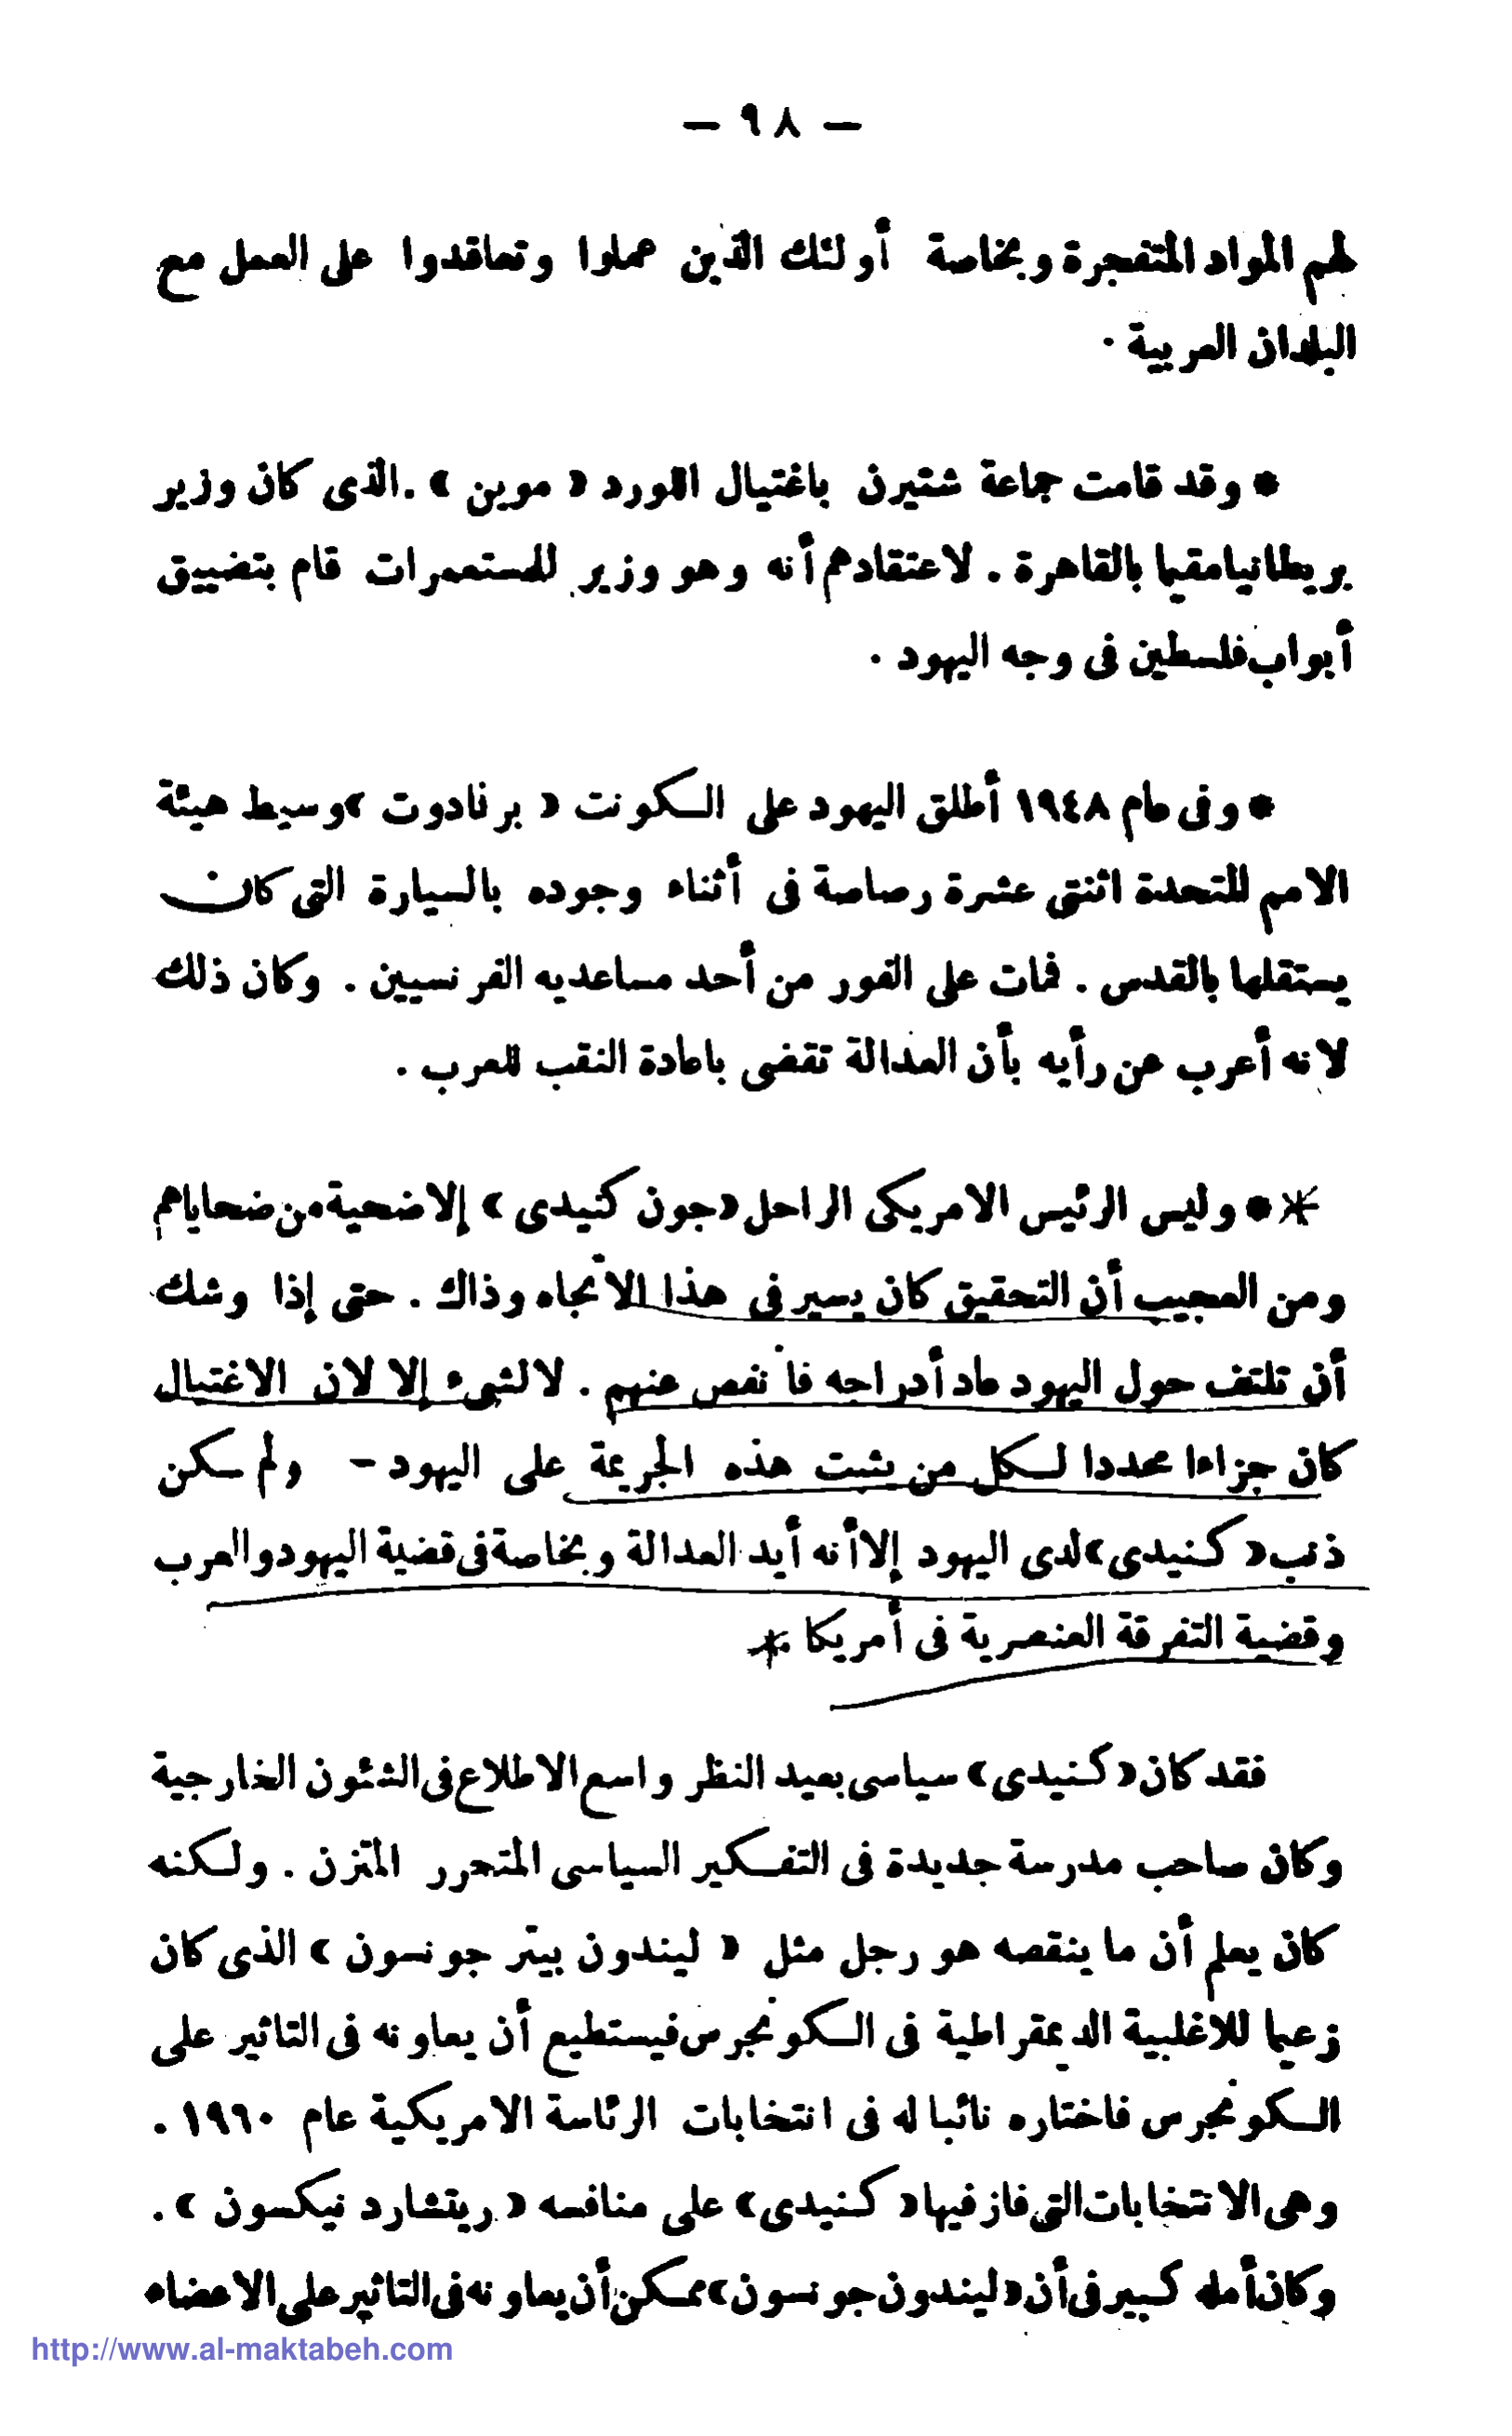 — ٩٨ —
لهم المواد المتفجرة وبخاصة أولئك الذين عملوا وتعاقدوا على العمل مع
البلدان العربية .
* وقد قامت جماعة شتيرن باغتيال اللورد « موين » . الذى كان وزير
بريطانيا مقيما بالقاهرة . لاعتقادهم أنه وهو وزير للمستعمرات قام بتضييق
أبواب فلسطين فى وجه اليهود .
* وفى عام ١٩٤٨ أطلق اليهود على الكونت « برنادوت » وسيط هيئة
الامم المتحدة اثنتى عشرة رصاصة فى أثناء وجوده بالسيارة التى كان
يستقلها بالقدس . فمات على الفور من أحد مساعديه الفرنسيين . وكان ذلك
لانه أعرب عن رأيه بأن العدالة تقضى باعادة النقب للعرب .
* * وليس الرئيس الامريكى الراحل « جون كنيدى » إلا ضحية من ضحاياهم
ومن العجيب أن التحقيق كان يسير فى هذا الاتجاه وذاك . حتى إذا وشك
أن تلتف حول اليهود عاد أدراجه فانفص عنهم . لا لشىء إلا لان الاغتيال
كان جزاءا محددا لكل من يثبت هذه الجريمة على اليهود - ولم سكن
ذنب « كنيدى » لدى اليهود إلا أنه أيد العدالة وبخاصة فى قضية اليهود والعرب
وقضية التفرقة العنصرية فى أمريكا *
فقد كان « كنيدى » سياسى بعيد النظر واسع الاطلاع فى الشئون الخارجية
وكان صاحب مدرسة جديدة فى التفكير السياسى المتحرر المتزن . ولكنه
كان يعلم أن ما ينقصه هو رجل مثل « ليندون بيتر جونسون » الذى كان
زعيما للاغلبية الديمقراطية فى الكونجرس فيستطيع أن يعاونه فى التاثير على
الكونجرس فاختاره نائبا له فى انتخابات الرئاسة الامريكية عام ١٩٦٠ .
وهى الانتخابات التى فاز فيها « كنيدى » على منافسه « ريتشارد نيكسون » .
وكان أمله كبير فى أن « ليندون جونسون » ممكن أن يعاونه فى التاثير على الاعضاء
http://www.al-maktabeh.com